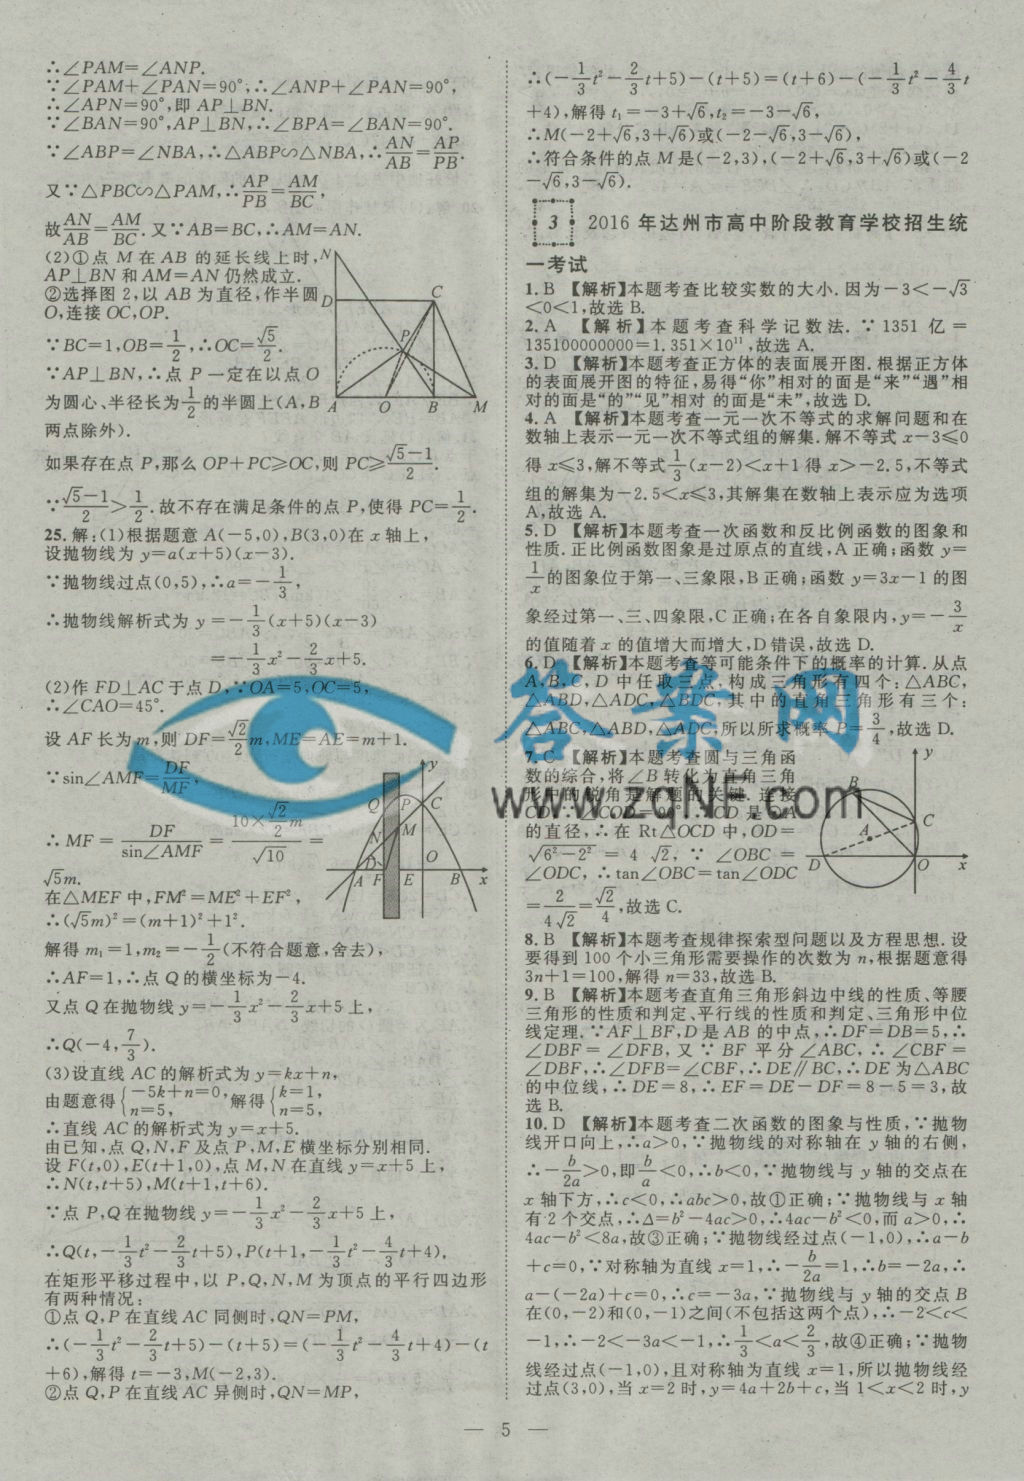 ∴∠PAM=∠ANP.
∵∠PAM+∠PAN=90°,∴∠ANP+∠PAN=90°,
∴∠APN=90°,即 AP⊥BN.
∵∠BAN=90°,AP⊥BN,∴∠BPA=∠BAN=90°.
∵∠ABP=∠NBA,∴△ABP∽△NBA,∴AN/AB=AP/PB.
又∵△PBC∽△PAM,∴AP/PB=AM/BC,
故AN/AB=AM/BC.又∵AB=BC,∴AM=AN.
(2)①点 M 在 AB 的延长线上时,
AP⊥BN 和 AM=AN 仍然成立.
②选择图 2,以 AB 为直径,作半圆
O,连接 OC,OP.
∵BC=1,OB=1/2,∴OC=√5/2.
∵AP⊥BN,∴点 P 一定在以点 O
为圆心、半径长为1/2的半圆上(A,B
两点除外).
N
D
C
P
A
O
B
M
如果存在点 P,那么 OP+PC≥OC,则 PC≥(√5-1)/2.
∵(√5-1)/2>1/2.故不存在满足条件的点 P,使得 PC=1/2.
25.解:(1)根据题意 A(-5,0),B(3,0)在 x 轴上,
设抛物线为 y=a(x+5)(x-3).
∵抛物线过点(0,5),∴a=-1/3,
∴抛物线解析式为 y=-1/3(x+5)(x-3)
=-1/3x²-2/3x+5.
(2)作 FD⊥AC 于点 D,∵OA=5,OC=5,
∴∠CAO=45°.
设 AF 长为 m,则 DF=√2/2m,ME=AE=m+1.
∵sin∠AMF=DF/MF,
∴MF=DF/sin∠AMF=(10×√2/2m)/√10=
√5m.
y
Q
P
C
N
M
D
O
A
F
E
B
x
在△MEF 中,FM²=ME²+EF²,
∴(√5m)²=(m+1)²+1².
解得 m₁=1,m₂=-1/2(不符合题意,舍去),
∴AF=1,∴点 Q 的横坐标为-4.
又点 Q 在抛物线 y=-1/3x²-2/3x+5 上,
∴Q(-4,7/3).
(3)设直线 AC 的解析式为 y=kx+n,
由题意得{-5k+n=0,n=5,解得{k=1,n=5,
∴直线 AC 的解析式为 y=x+5.
由已知,点 Q,N,F 及点 P,M,E 横坐标分别相同.
设 F(t,0),E(t+1,0),点 M,N 在直线 y=x+5 上,
∴N(t,t+5),M(t+1,t+6).
∵点 P,Q在抛物线 y=-1/3x²-2/3x+5 上,
∴Q(t,-1/3t²-2/3t+5),P(t+1,-1/3t²-4/3t+4).
在矩形平移过程中,以 P,Q,N,M 为顶点的平行四边形
有两种情况:
①点 Q,P 在直线 AC 同侧时,QN=PM,
∴(-1/3t²-2/3t+5)-(t+5)=(-1/3t²-4/3t+4)-(t
+6),解得 t=-3,M(-2,3).
②点 Q,P 在直线 AC 异侧时,QN=MP,
∴(-1/3t²-2/3t+5)-(t+5)=(t+6)-(-1/3t²-4/3t
+4),解得 t₁=-3+√6,t₂=-3-√6,
∴M(-2+√6,3+√6)或(-2-√6,3-√6),
∴符合条件的点 M 是(-2,3),(-2+√6,3+√6)或(-2
-√6,3-√6).
3 2016 年达州市高中阶段教育学校招生统
一考试
1.B 【解析】本题考查比较实数的大小.因为-3<-√3
<0<1,故选 B.
2.A 【解析】本题考查科学记数法.∵1351 亿=
135100000000=1.351×10¹¹,故选 A.
3.D 【解析】本题考查正方体的表面展开图.根据正方体
的表面展开图的特征,易得“你”相对的面是“来”“遇”相
对的面是“的”“见”相对 的面是“未”,故选 D.
4.A 【解析】本题考查一元一次不等式的求解问题和在
数轴上表示一元一次不等式组的解集.解不等式 x-3≤0
得 x≤3,解不等式1/3(x-2)<x+1 得 x>-2.5,不等式
组的解集为-2.5<x≤3,其解集在数轴上表示应为选项
A,故选 A.
5.D 【解析】本题考查一次函数和反比例函数的图象和
性质.正比例函数图象是过原点的直线,A 正确;函数 y=
1/x的图象位于第一、三象限,B 正确;函数 y=3x-1 的图
象经过第一、三、四象限,C 正确;在各自象限内,y=-3/x
的值随着 x 的值增大而增大,D 错误,故选 D.
6.D 【解析】本题考查等可能条件下的概率的计算.从点
A,B,C,D 中任取三点,构成三角形有四个:△ABC,
△ABD,△ADC,△BDC,其中的直角三角形有三个:
△ABC,△ABD,△ADC,所以所求概率 P=3/4,故选 D.
7.C 【解析】本题考查圆与三角函
数的综合,将∠B 转化为直角三角
形中的锐角是解题的关键.连接
CD,∵∠COD=90°,∴CD 是⊙A
的直径,∴在 Rt△OCD 中,OD=
√(6²-2²)=4√2,∵∠OBC=
∠ODC,∴tan∠OBC=tan∠ODC
=2/(4√2)=√2/4,故选 C.
y
B
C
A
D
O
x
8.B 【解析】本题考查规律探索型问题以及方程思想.设
要得到 100 个小三角形需要操作的次数为 n,根据题意得
3n+1=100,解得 n=33,故选 B.
9.B 【解析】本题考查直角三角形斜边中线的性质、等腰
三角形的性质和判定、平行线的性质和判定、三角形中位
线定理.∵AF⊥BF,D 是 AB 的中点,∴DF=DB=5,∴
∠DBF=∠DFB,又∵BF 平分∠ABC,∴∠CBF=
∠DBF,∴∠DFB=∠CBF,∴DE∥BC,∴DE 为△ABC
的中位线,∴DE=8,∴EF=DE-DF=8-5=3,故
选 B.
10.D 【解析】本题考查二次函数的图象与性质,∵抛物
线开口向上,∴a>0,∵抛物线的对称轴在 y 轴的右侧,
∴-b/2a>0,即b/a<0,∴b<0,∵抛物线与 y 轴的交点在
x 轴下方,∴c<0,∴abc>0,故①正确;∵抛物线与 x 轴
有 2 个交点,∴Δ=b²-4ac>0,∴4ac-b²<0,而 a>0,∴
4ac-b²<8a,故③正确;∵抛物线经过点(-1,0),∴a-b
+c=0,∵对称轴为直线 x=1,∴-b/2a=1,∴b=-2a,∴
a-(-2a)+c=0,∴c=-3a,∵抛物线与 y 轴的交点 B
在(0,-2)和(0,-1)之间(不包括这两个点),∴-2<c<
-1,∴-2<-3a<-1,∴1/3<a<2/3,故④正确;∵抛物
线经过点(-1,0),且对称轴为直线 x=1,所以抛物线经
过点(3,0),当 x=2 时,y=4a+2b+c,当 1<x<2 时,y
答案网
www.zqNF.com
— 5 —